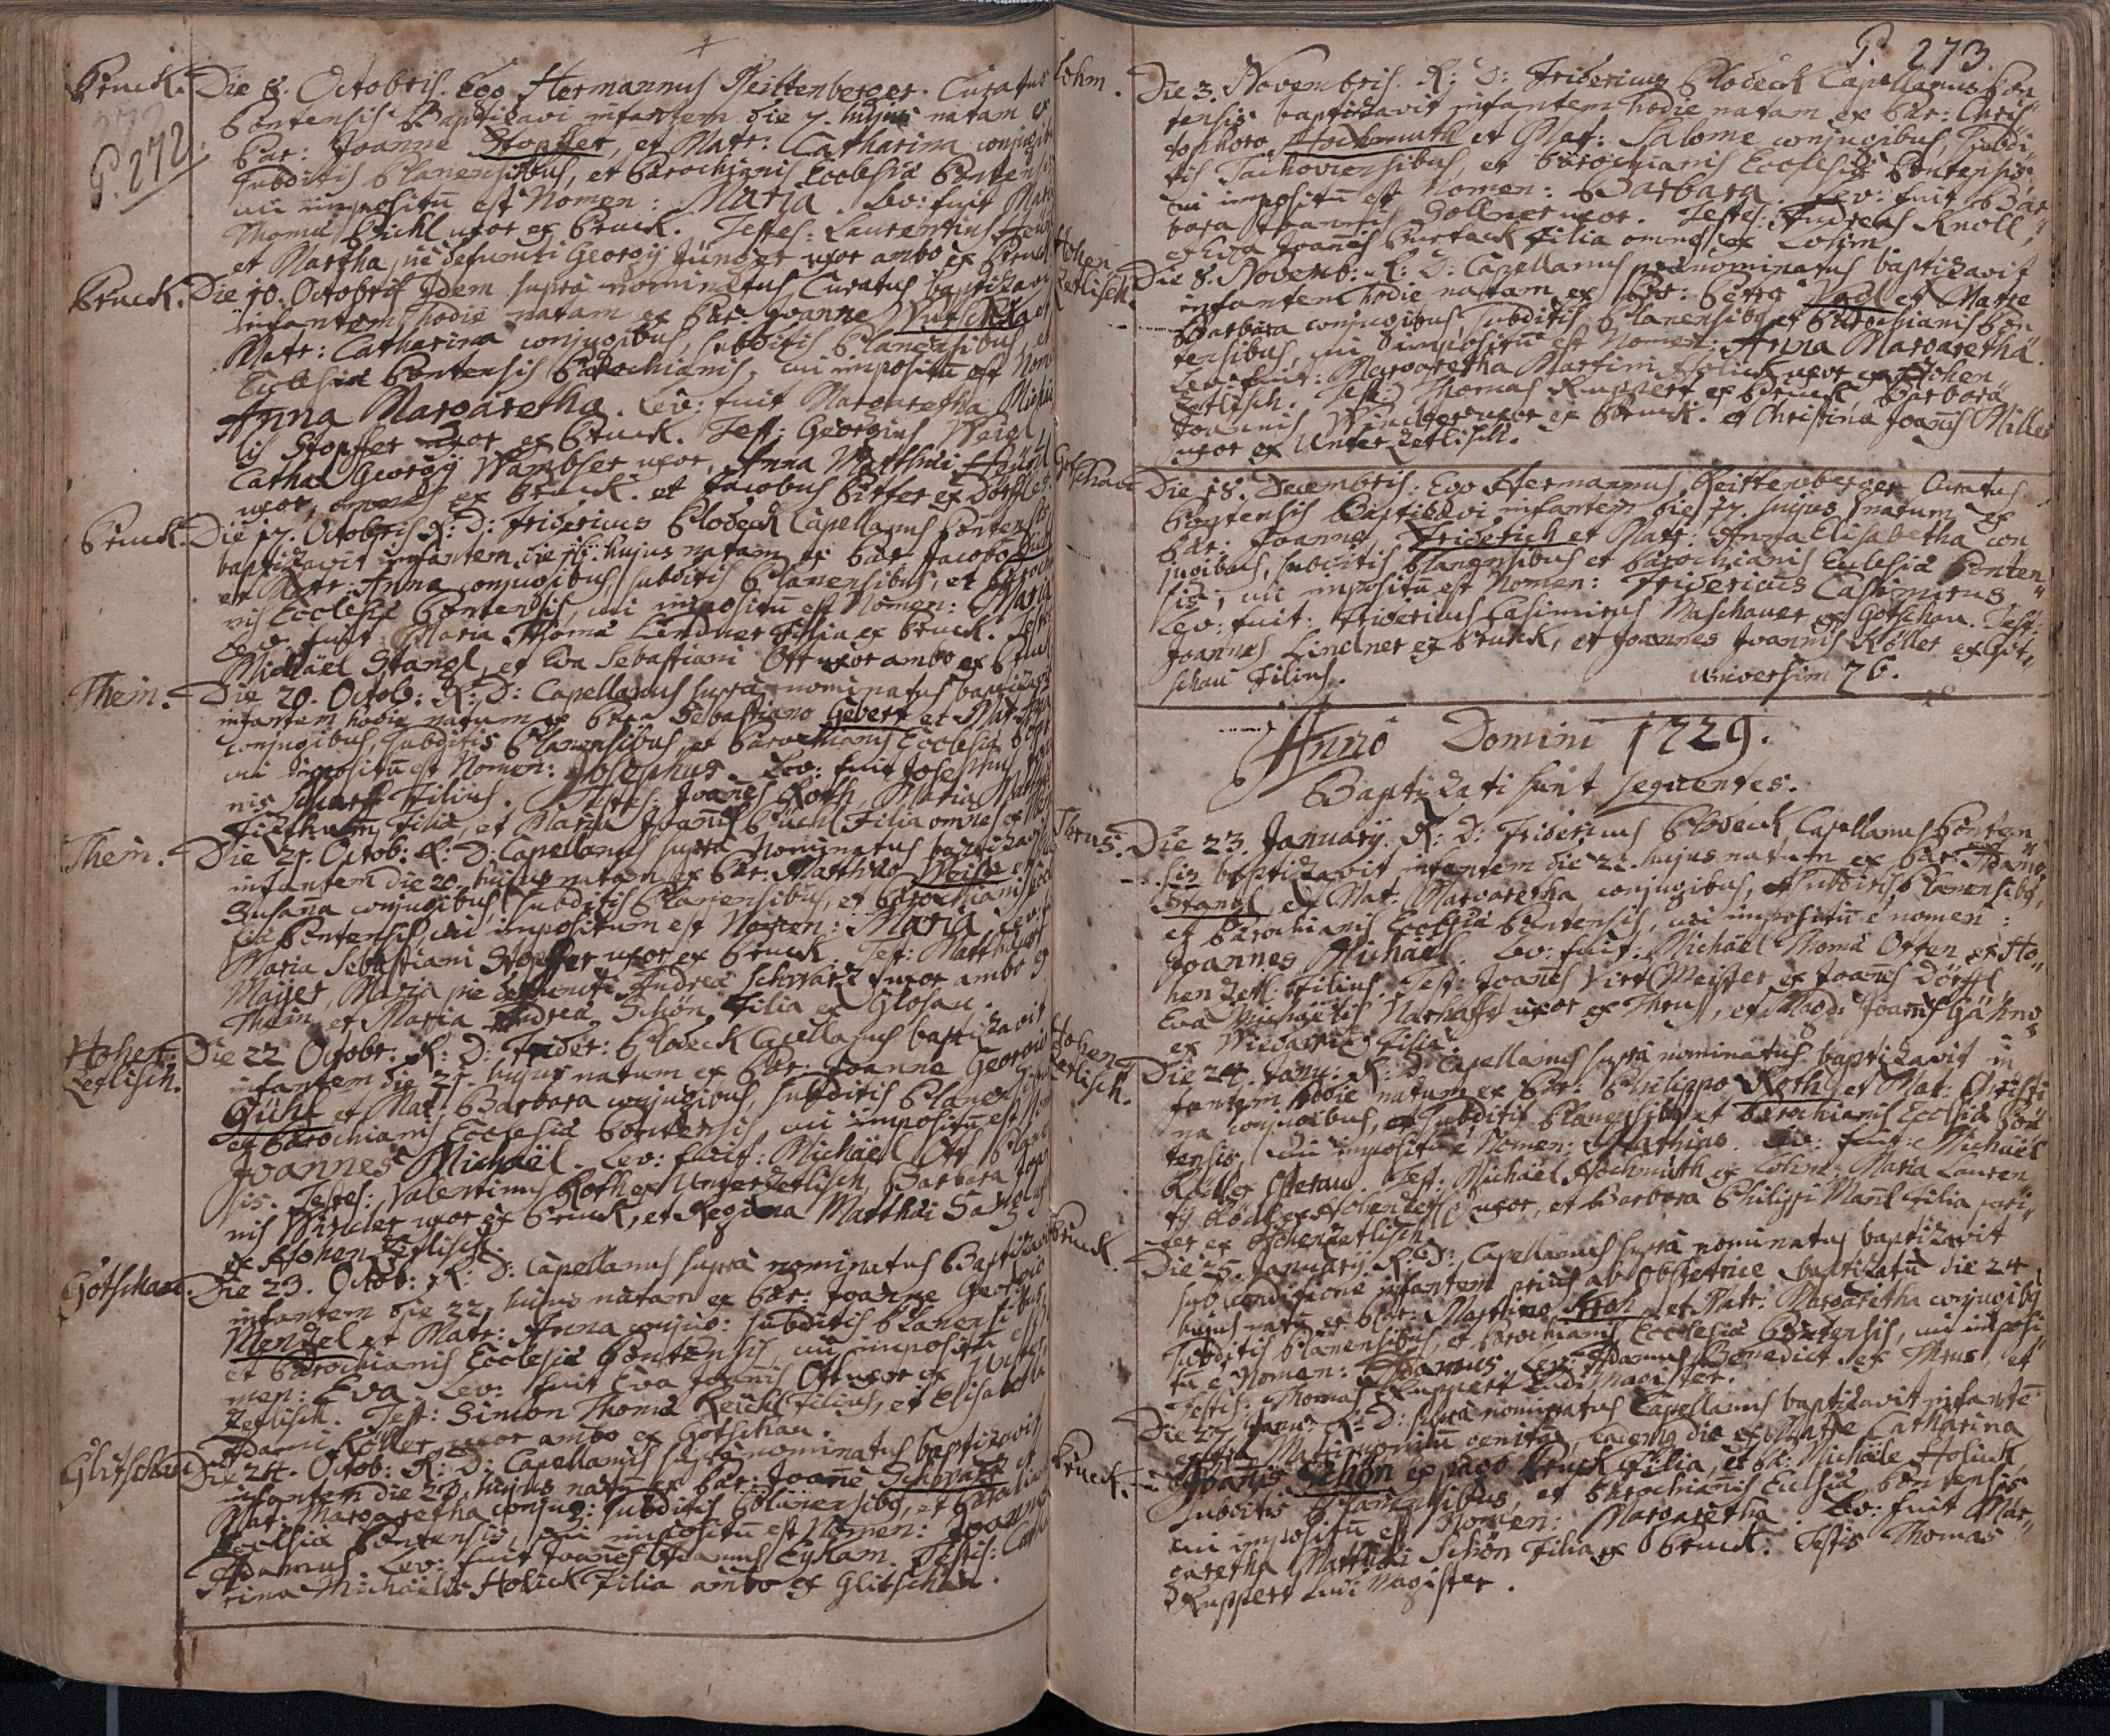 P. 272.
Bruck. Die 8. Octobris. Ego Hermannus Reittenberger Curatus
Pontensis Baptizavi infantem die 7. hujus natam ex
Par: Joanne Stopffer, et Matr: Catharina conjugib
subditis Planensibus, et Parochianis Ecclesiæ Pontensis
cui impositū est Nomen: Maria. Lev: fuit
Thomæ Pichl uxor ex Bruck. Testes: Laurentius
et Martha piè defuncti Georgij Jünger uxor ambo ex Bruck
Bruck. Die 10. Octobris Idem suprà nominatus Curatus baptizavi
infantem hodie natam ex Par: Joanne
Matr: Catharina conjugibus, subditis Planensibus, et
Ecclesiæ Pontensis Parochianis, cui impositū est Nomen
Anna Margaretha. Lev: fuit Margaretha Michae
lis Stopffer uxor ex Bruck. Test: Georgius Weigl
Cathar: Georgij Wambser uxor, Anna Matthæi
uxor, omnes ex Bruck. et Jacobus
Bruck. Die 17. Octobris R: D: Fridericus Plodeck Capellanus Ponten
baptizavit infantem die hujus natam ex Par: Jacobo
et Matr: Anna conjugibus, subditis Planensibus, et Parochia
nis Ecclesiæ Pontensis, cui impositū est Nomen: Maria
Lev: fuit Maria Thomæ Lindner Filia ex Bruck. Testes
Michaël Stangl, et Eva Sebastiani Ott uxor ambo ex Bruck
Thein. Die 20. Octob: R: D: Capellanus suprà nominatus baptizavit
infantem hodie natum ex Par: Sebastiano Gebert et Mat:
conjugibus, subditis Planensibus, et Parochianis Ecclesiæ
cui impositū est Nomen: Josephus. Lev: fuit Josephus
nis Scharff Filius. Testes: Joanes Roth, Maria
Filia, et Maria Joanis Püchl Filia omnes ex
Thein. Die 21. Octob: R: D: Capellanus suprà nominatus baptizavit
infantem die 20. hujus natam ex Par: Matthæo Weiss et
Susaña conjugibus, subditis Planensibus, et Parochianis Eccle
siæ Pontensis, cui impositum est Nomen: Maria. Lev:
Maria Sebastiani Stopffer uxor ex Bruck. Test: Matthæus
Majer, Maria piè defuncti Andreæ Schwartz uxor ambo ex
Thein, et Maria Andreæ Schön Filia ex Glosau.
Hohen:
Zetlisch. Die 22 Octobr: R: D: Frider: Plodeck Capellanus baptizavit
infantem die 21. hujus natum ex Par: Joanne Georgio
et Mat: Barbara conjugibus, subditis Planen
et Parochianis Ecclesiæ Pontensis, cui impositū est
Joannes Michaël. Lev: fuit: Michaël Ott
sis. Testes: Valentinus Roth ex Unterzetlisch, Barbara Joan
nis Winder uxor ex Bruck, et Regina Matthæi
ex Hohen Zetlisch.
Gotschau. Die 23. Octob: R: D: Capellanus suprà nominatus Baptizavit
infantem die 22. hujus natam ex Par: Joanne Georgio
Menzel et Matr: Anna conjug: subditis Planensibus
et Parochianis Ecclesiæ Pontensis, cui impositū est
men: Eva. Lev: fuit Eva Joannis Ott uxor ex Unter
Zetlisch. Test: Simon Thomæ Reichl Filius, et Elisabetha
Adami Köller uxor ambo ex Gotschau.
Glitschau Die 24. Octob: R: D: Capellanus suprà nominatus baptizavit
infantem die 23. hujus natū ex Par: Joañe Schwartz et
Mat: Margaretha conjug: subditis Planensibq, et Parochian
Ecclesiæ Pontensis, cui impositū est Nomen: Joannes
Adamus. Lev: fuit Joañes Adamus Eykam. Testis: Catha
rina Michaëlis Holick Filia ambo ex Glitschau.
P. 273.
Lohm. Die 3. Novembris. R: D: Fridericus Plodeck Capellanus Pon
tensis baptizavit infantem hodie natam ex Par: Chris
tophoro Hochmuth et Mat: Salome conjugibus, subdi
tis Tachoviensibus, et Parochianis Ecclesiæ Pontensis
cui impositū est Nomen: Barbara. Lev: fuit Bar
bara Joannis Gollner uxor. Testes: Andreas Knoll,
et Eva Joanis Burtack Filia omnes ex Lohm.
Hohen
Zetlisch. Die 8. Novemb: R: D: Capellanus prænominatus baptizavit
infantem hodie natam ex Par: Petro Vogl et Matre
Barbara conjugibus, subditis Planensibq et Parochianis Pon
tensibus, cui impositū est Nomen: Anna Margaretha.
Lev: fuit: Margaretha Martini Holick uxor ex Hohen
Zetlisch. Test: Thomas Ruppert ex Bruck Barbara
Joannis Winder uxor ex Bruck. et Christina Joanis Miller
uxor ex Unter Zetlisch.
Gotschau Die 18. Decembris: Ego Hermannus Reittenberger Curatus
Pontensis Baptizavi infantem die 17. hujus natum ex
Par: Joanne Friderich et Matr: Anna Elisabetha con
jugibus, subditis Planensibus et Parochianis Ecclesiæ Ponten
sis, cui impositū est Nomen: Fridericus Casimirus.
Lev: fuit: Fridericus Casimirus Maschauer ex Gotschau. Test:
Joannes Lindner ex Bruck, et Joannes Joannis Köller ex Got
schau Filius. universim 76.
Anno Domini 1729.
Baptizati sunt sequentes.
Thrus. Die 23. Januarÿ. R: D: Fridericus Plodeck Capellanus Ponten
sis baptizavit infantem die 22. hujus natum ex Par: Adamo
Stangl et Mat: Margaretha conjugibus, et subditis Planensibq,
et Parochianis Ecclesiæ Pontensis, cui impositū ē nomen:
Joannes Michaël. Lev: fuit: Michaël Thomæ Otten ex Ho
hen Zetl: Filius. Test: Joanes Virl Meister ex Joanes Dörffl
Eva Michaëlis uxor ex Thrus, et Magd: Joanis
ex Filia.
Hohen
Zetlisch. Die 24. Janu: R: D: Capellanus suprà nominatus baptizavit in
fantem hodie natum ex Par: Philippo Roth et Mat: Christi
na conjugibus, et subditis Planensibq et Parochianis Ecclesiæ Pon
tensis, cui impositū ē Nomen: Mathias. Lev: fuit: Michaël
ex Ottenau. Test: Michaël Hochmuth ex Lohm, Maria Lauren
tij ex Hohenzetl: uxor, et Barbara Philippi Filia pari
ter ex Hohenzetlisch.
Bruck Die 25. Januarÿ. R: D: Capellanus suprà nominatus baptizavit
sub conditione infantem priùs ab obstetrice baptizatū die 24
hujus natū ex Par: Martino et Matr: Margaretha conjugibq
subditis Planensibus, et Parochianis Ecclesiæ Pontensis, cui imposi
tū ē Nomen: Adamus. Lev: Adamus Benedict ex Thrus, et
Testis: Thomas Ruppert Ludi Magister.
Bruck. Die 27. Janu: R: D: suprà nominatus Capellanus baptizavit infantē
extra Matrimoniū genitam, eademq die ex Matre Catharina
Joanis Schön ex pago Bruck Filia, et Pa: Michaële Holick,
subditis Planensibus, et Parochianis Ecclesiæ Pontensis
cui impositū est Nomen: Margaretha. Lev: fuit Mar
garetha Matthæi Schön Filia ex Bruck. Testis Thomas
Ruppert Ludi Magister.